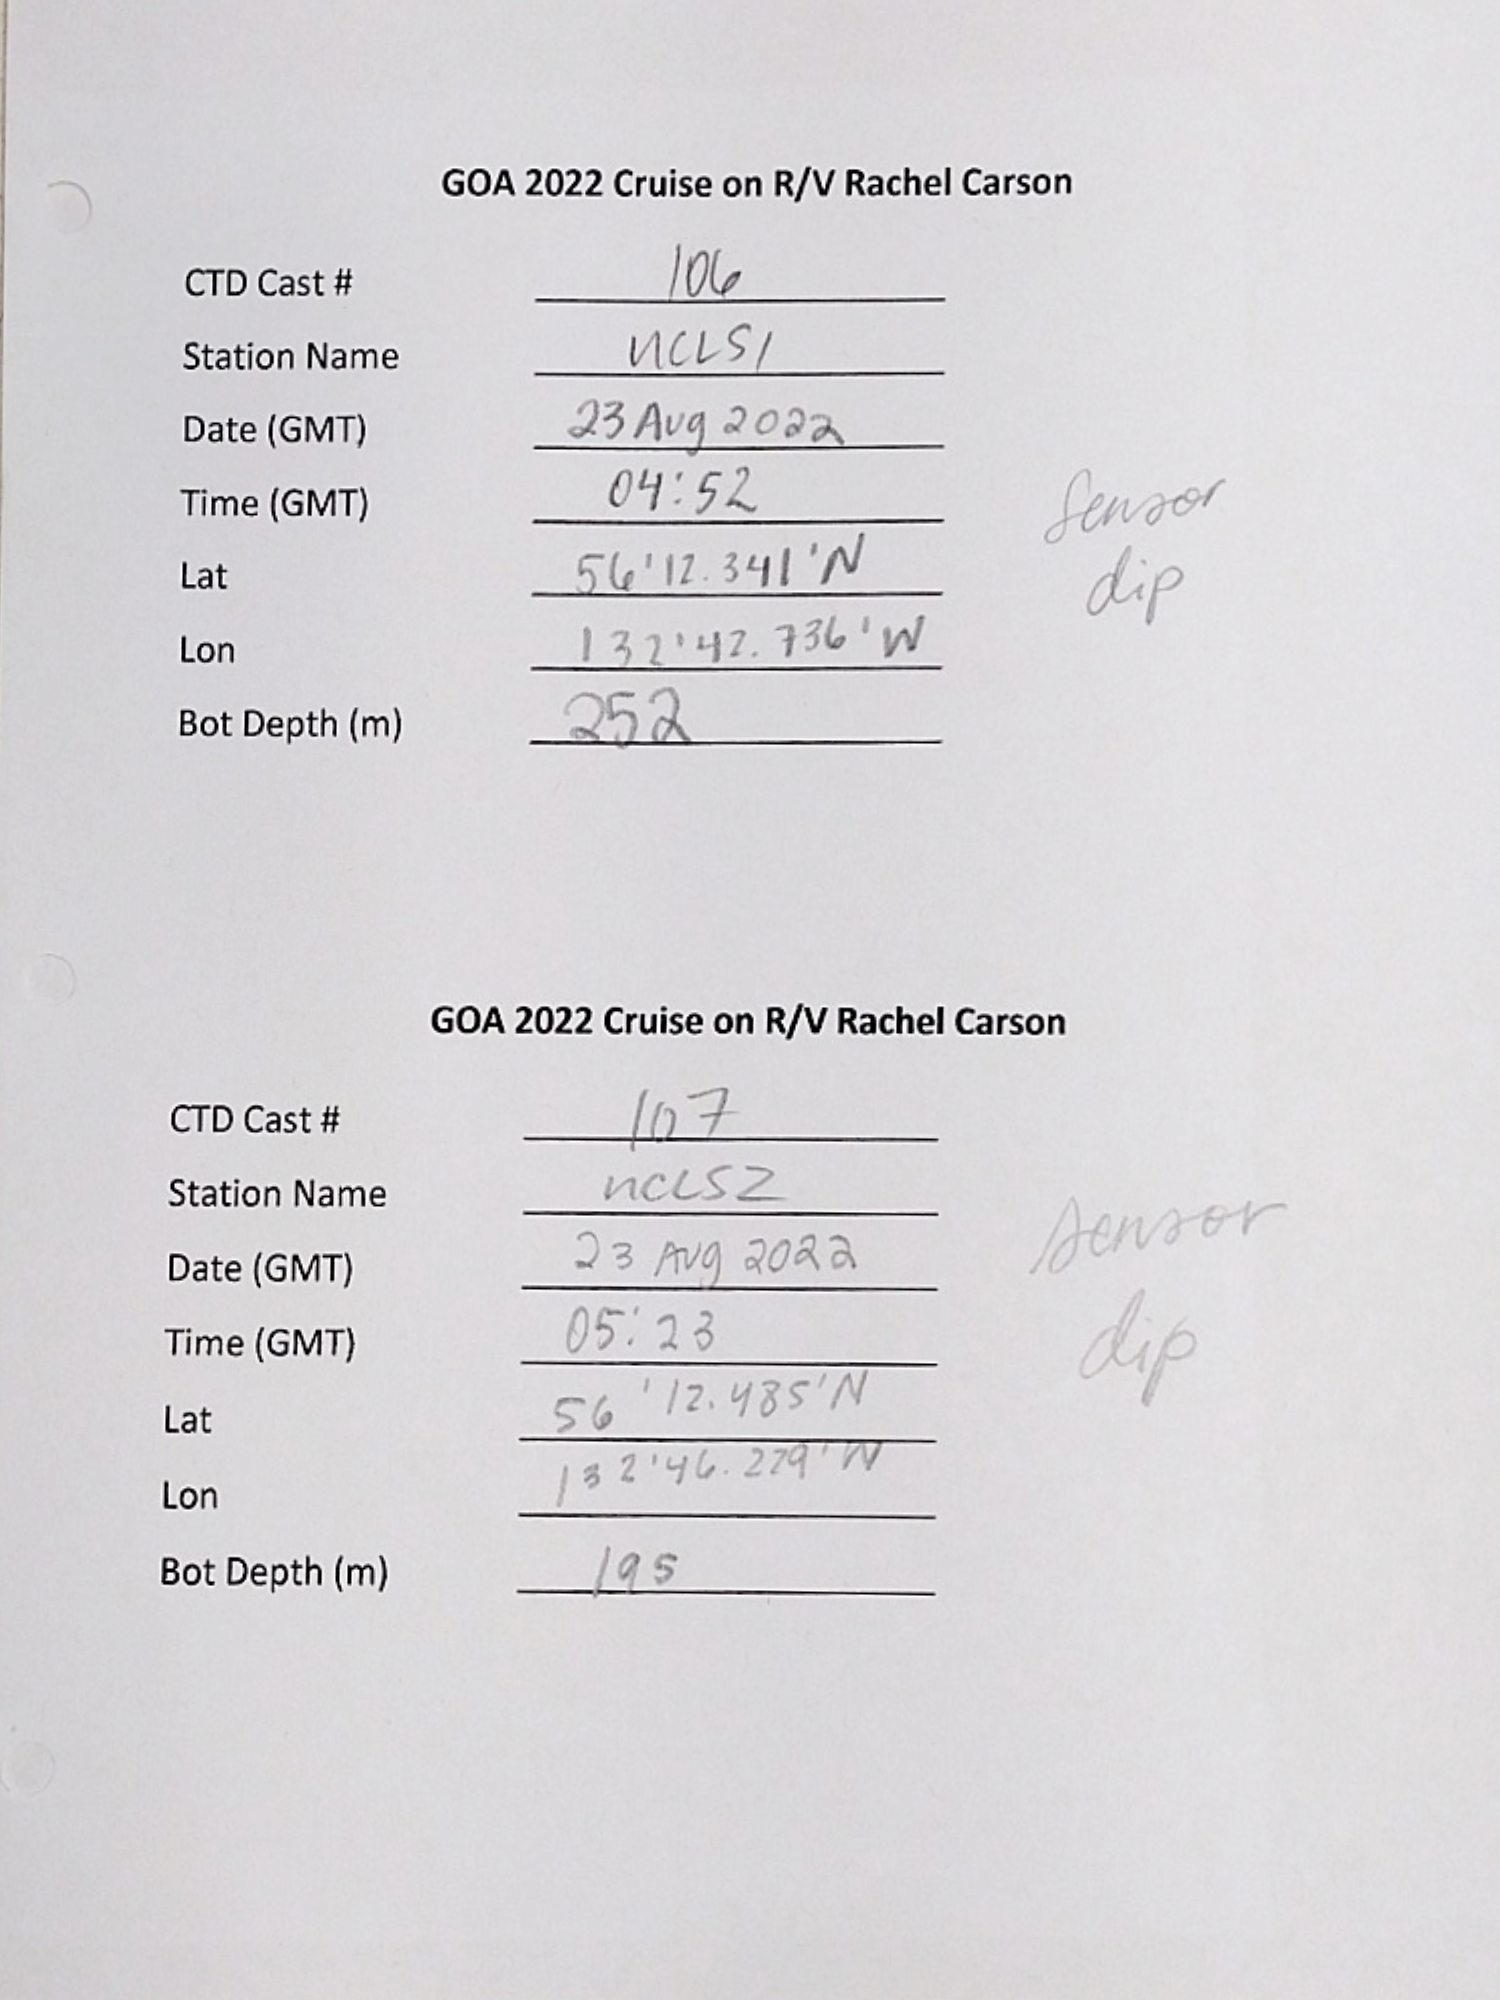 GOA 2022 Cruise on R/V Rachel Carson
CTD Cast # 106
Station Name NCLS1
Date (GMT) 23 Aug 2022
Time (GMT) 04:52
Sensor
dip
Lat 56'12.341'N
Lon 132'42.736'W
Bot Depth (m) 252
GOA 2022 Cruise on R/V Rachel Carson
CTD Cast # 107
Station Name NCLS2
Date (GMT) 23 Aug 2022
Sensor
dip
Time (GMT) 05:23
Lat 56'12.485'N
Lon 132'46.229'W
Bot Depth (m) 195